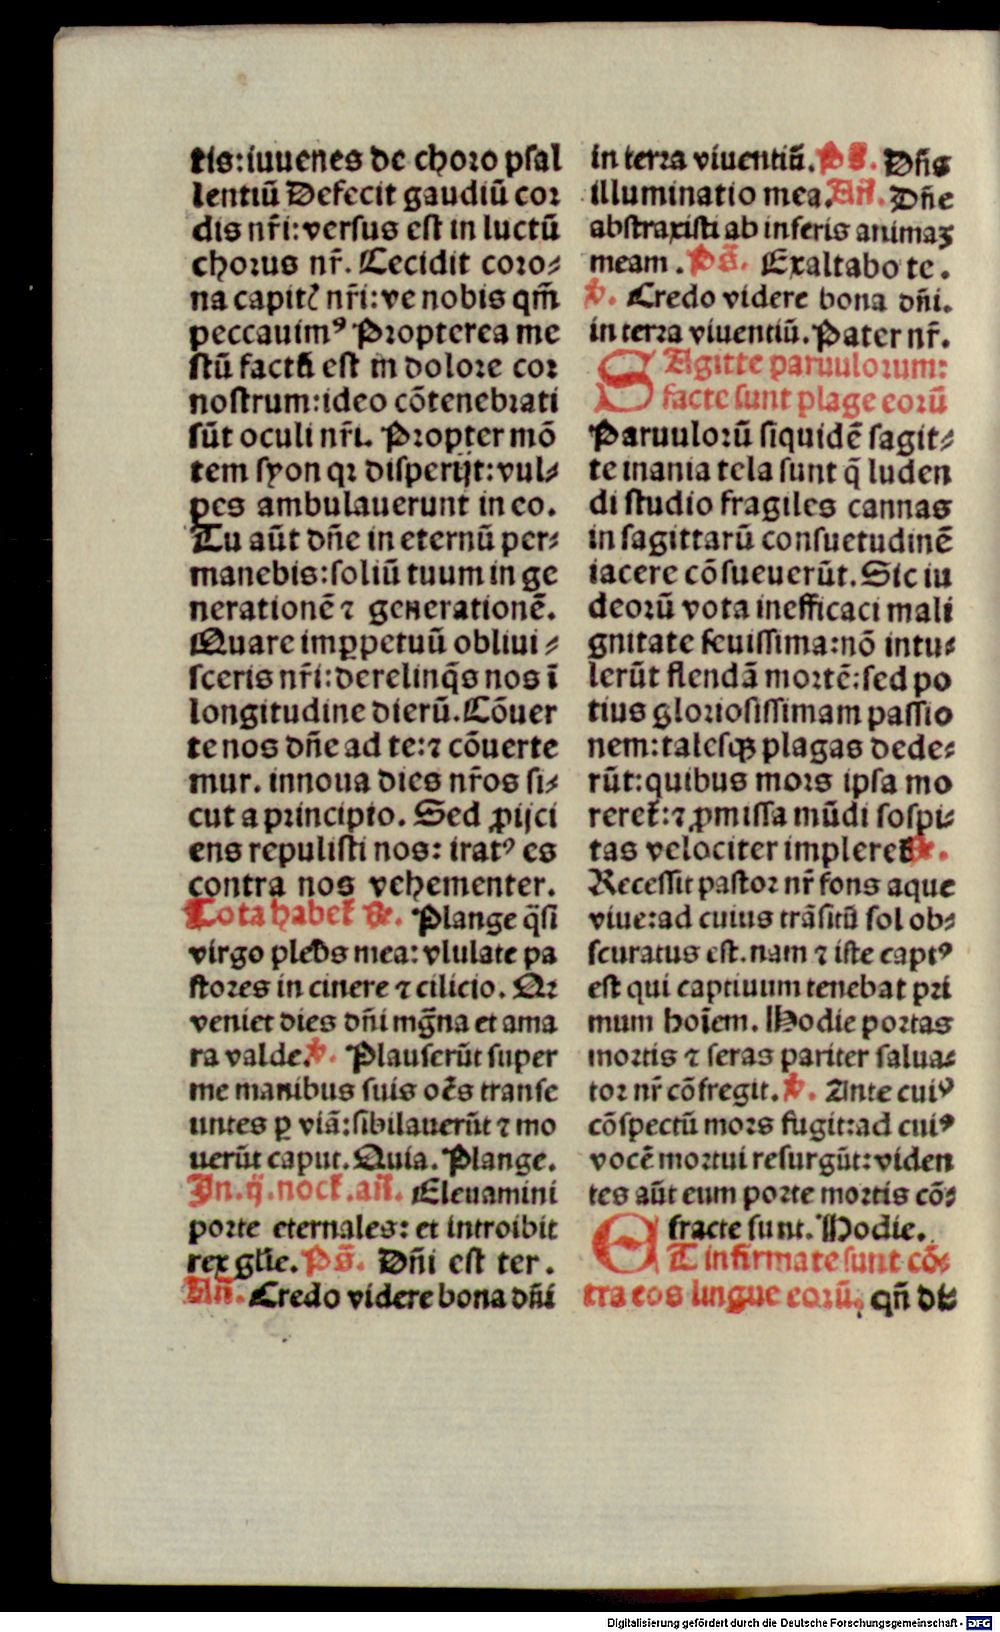 tis: iuuenes de choro psal
lentiũ Defecit gaudiũ cor
dis nr̃i: versus est in luctũ
chorus nr̃. Cecidit coro⸗
na capitꝭ nr̃i: ve nobis qm̃
peccauimꝰ Propterea me
stũ factũ est in dolore cor
nostrum: ideo cõtenebrati
sũt oculi nr̃i. Propter mõ
tem syon qꝛ disperijt: vul⸗
pes ambulauerunt in eo.
Tu aũt dñe in eternũ per⸗
manebis: soliũ tuum in ge
nerationẽ ⁊ generationẽ.
Quare imꝑpetuũ obliui⸗
sceris nr̃i: derelinq̃s nos ĩ
longitudine dierũ. Cõuer
te nos dñe ad te: ⁊ cõuerte
mur. innoua dies nr̃os si⸗
cut a principio. Sed ꝓijci
ens repulisti nos: iratꝰ es
contra nos vehementer.
Tota habet̃ ℟. Plange q̃si
virgo plebs mea: vlulate pa
stores in cinere ⁊ cilicio. Qꝛ
veniet dies dñi mg̃na et ama
ra valde. ℣. Plauserũt super
me manibus suis oẽs transe
untes ꝑ viã: sibilauerũt ⁊ mo
uerũt caput. Quia. Plange.
In. ij. noct̃. añ. Eleuamini
porte eternales: et introibit
rex gl̃ie. Ps̃. Dñi est ter.
Añ. Credo videre bona dñi
in terra viuentiũ. Ps̃. Dñs
illuminatio mea. Añ. Dñe
abstraxisti ab inferis animaꝫ
meam. Ps̃. Exaltabo te.
℣. Credo videre bona dñi.
in terra viuentiũ. Pater nr̃.
SAgitte paruulorum:
facte sunt plage eorũ
Paruulorũ siquidẽ sagit⸗
te inania tela sunt q̃ luden
di studio fragiles cannas
in sagittarũ consuetudinẽ
iacere cõsueuerũt. Sic iu
deorũ vota inefficaci mali
gnitate seuissima: nõ intu⸗
lerũt flendã mortẽ: sed po
tius gloriosissimam passio
nem: talesqꝫ plagas dede⸗
rũt: quibus mors ipsa mo
reret̃: ⁊ ꝓmissa mũdi sospi⸗
tas velociter impleret̃ ℟.
Recessit pastor nr̃ fons aque
viue: ad cuius trãsitũ sol ob⸗
scuratus est. nam ⁊ iste captꝰ
est qui captiuum tenebat pri
mum hoĩem. Hodie portas
mortis ⁊ seras pariter salua⸗
tor nr̃ cõfregit. ℣. Ante cuiꝰ
cõspectũ mors fugit: ad cuiꝰ
vocẽ mortui resurgũt: viden
tes aũt eum porte mortis cõ⸗
fracte sunt. Hodie.
ET infirmate sunt cõ⸗
tra eos lingue eorũ. qñ
Digitalisierung gefördert durch die Deutsche Forschungsgemeinschaft - DFG